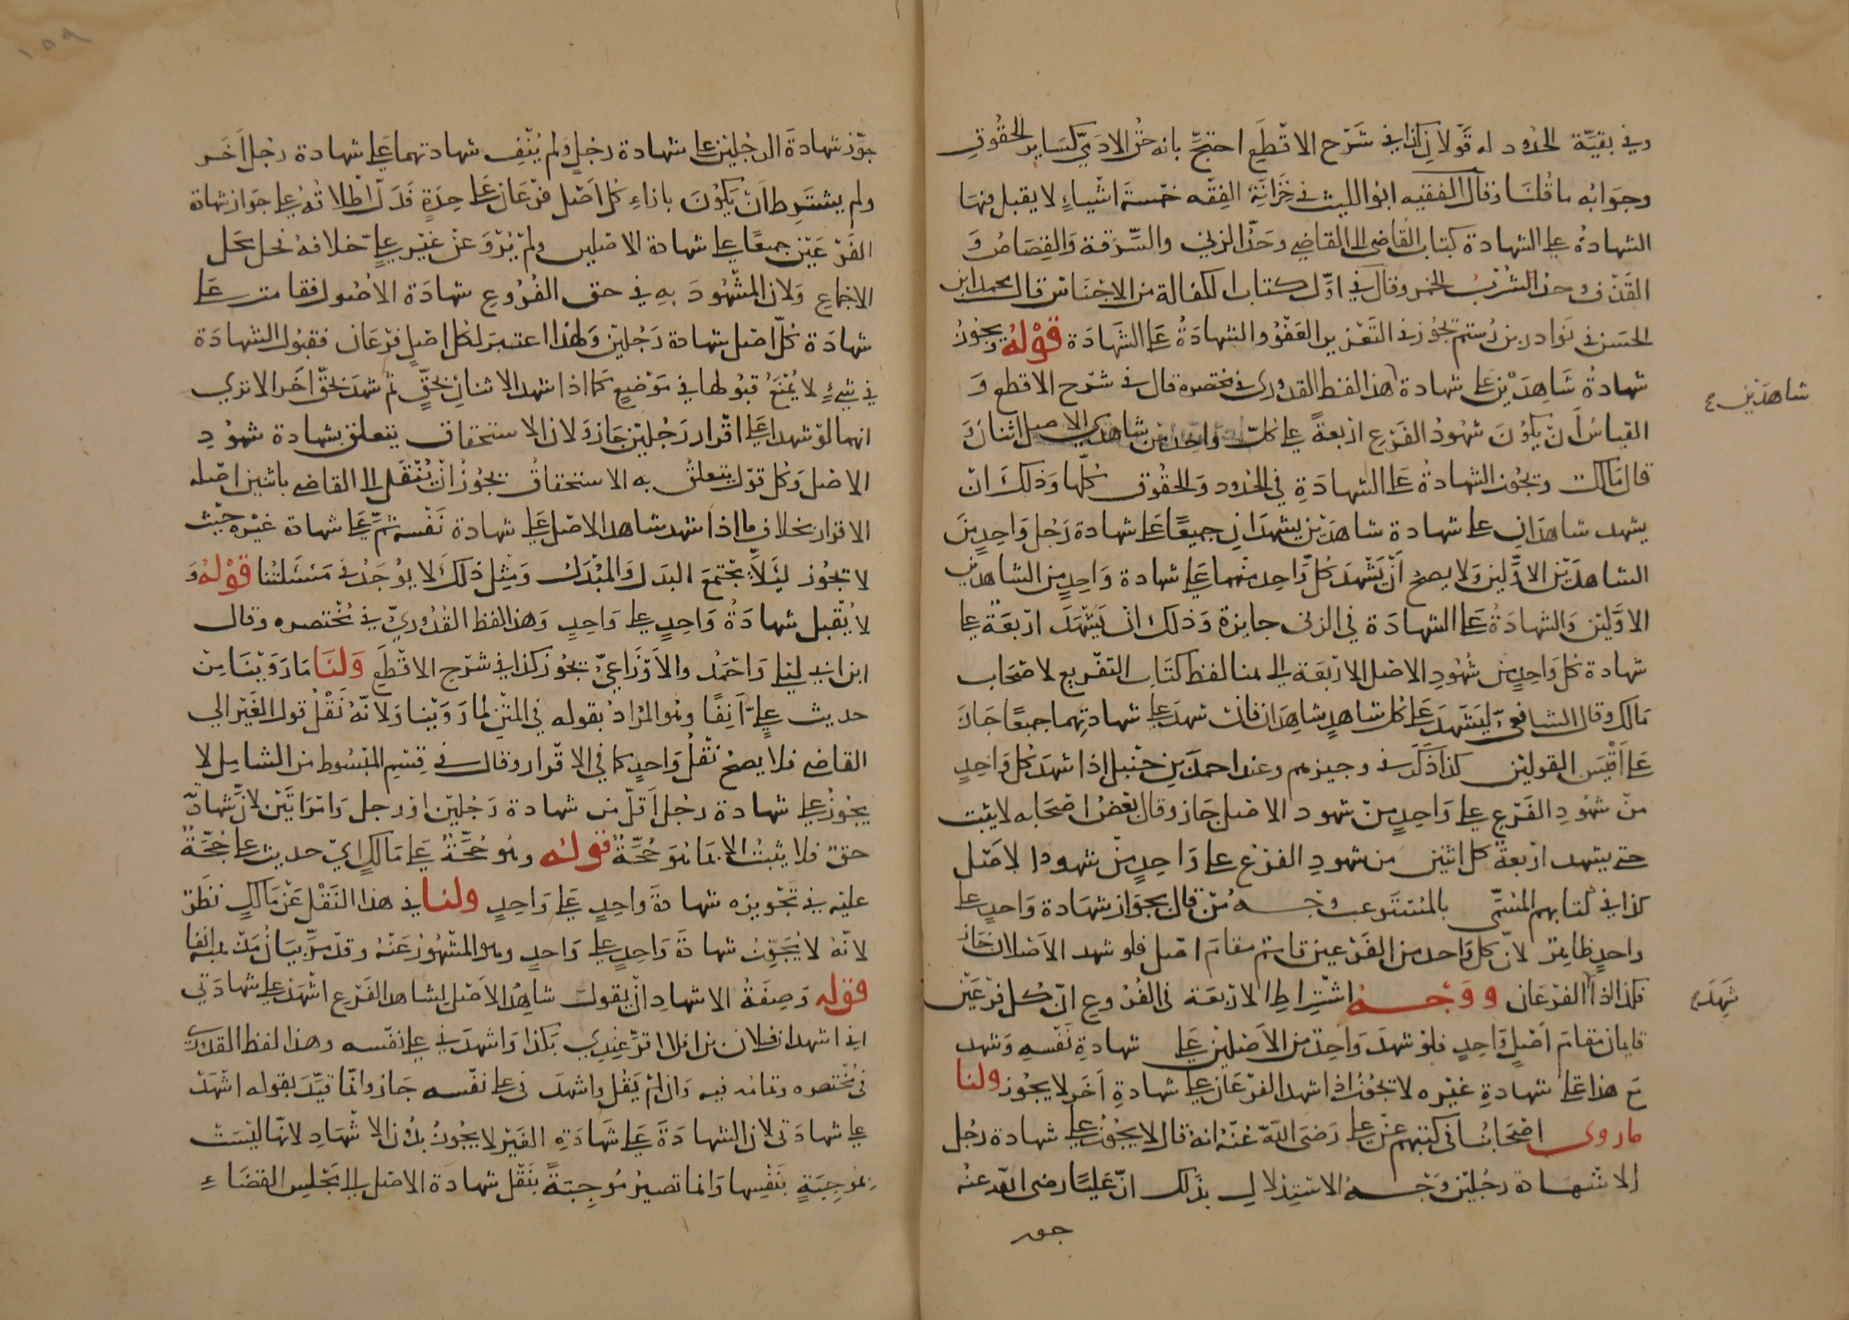 وفي بقيّة الحدود له قولان كذا في شرح الاقطع احتج بانه حق الادمي كساير الحقوق
وجوابه ما قلنا وقال الفقيه ابو الليث في خزانة الفقه خمسة اشياء لا يقبل فيها
الشهادة على الشهادة كتاب القاضي الى القاضي وحد الزنى والسرقة والقصاص و
القذف وحد الشرب الخمر وقال في اول كتاب الكفالة من الاجناس قال محمد ابن
الحسن في نوادر بن رستم تجوز في التعزير العفو والشهادة على الشهادة قوله ويجوز
شهادة شاهدين على شهادة هذا لفظ القدوري في مختصره قال في شرح الاقطع و
شاهدين
القياس أن يكون شهود الفرع اربعة على كل واحد من شاهدي الاصل اثنان و
قال مالك وتجوز الشهادة على الشهادة في الحدود والحقوق كلها وذلك ان
يشهد شاهدان على شهادة شاهدين يشهدان جميعا على شهادة رجل واحد من
الشاهدين الاولين ولا يصح أن يشهد كل واحد منهما على شهادة واحد من الشاهدين
الاولين والشهادة على الشهادة في الزنى جايزة وذلك ان يشهد اربعة على
شهادة كل واحد من شهود الاصل الاربعة الى هنا لفظ كتاب التفريع لاصحاب
مالك وقال الشافعي ليشهد على كل شاهد شاهدان فان شهد على شهادتهما جميعا جاز
على أقيس القولين كذا ذكر في وجيزهم وعند احمد بن حنبل اذا شهد كل واحد
من شهود الفرع على واحد من شهود الاصل جاز وقال بعض اصحابه لا يثبت
حتى يشهد اربعة كل اثنين من شهود الفرع على واحد من شهود الاصل
كذا في كتابهم المسمى بالمستوعب وجه من قال بجواز شهادة واحد على
واحد ظاهر لان كل واحد من الفرعين قائم مقام اصل فلو شهد الاصلان جاز
فكذا اذا الفرعان ووجه اشتراط الاربعة في الفروع ان كل فرعين
شهد
قايمان مقام اصل واحد فلو شهد واحد من الاصلين على شهادة نفسه وشهد
مع هذا على شهادة غيره لا تجوز اذا شهد الفرعان على شهادة آخر لا يجوز ولنا
ما روى اصحابنا في كتبهم عن علي رضي الله عنه انه قال لا يجوز على شهادة رجل
الا شهادة رجلين وجه الاستدلال بذلك ان عليا رضي الله عنه
جوز
١٥٩
جوّز شهادة الرجلين على شهادة رجل ولم ينف شهادتهما على شهادة رجل آخر
ولم يشترط أن يكون بازاء كل أصل فرعان على حدة فدل اطلاقه على جواز شهادة
الفرعين جميعا على شهادة الاصلين ولم يرو عن غير علي خلافه فحل محل
الاجماع ولان المشهود به في حق الفروع شهادة الاصول فقامت على
شهادة كل اصل شهادة رجلين ولهذا اعتبر لكل اصل فرعان فقبول الشهادة
في شيء لا يمنع قبولها في موضع كما اذا شهد الاثنان بحق ثم شهد بحق آخر الا ترى
انهما لو شهدا على اقرار رجلين جاز ولان الاستحقاق يتعلق بشهادة شهود
الاصل وكل قول يتعلق به الاستحقاق يجوز أن ينتقل الى القاضي باثنين اصله
الاقرار بخلاف ما اذا شهد شاهد الاصل على شهادة نفسه ثم على شهادة غيره حيث
لا تجوز ليلا يجتمع البدل والمبدل ومثل ذلك لا يوجد في مسئلتنا قوله و
لا يقبل شهادة واحد على واحد وهذا لفظ القدوري في مختصره وقال
ابن ابي ليلى واحمد والأوزاعي يجوز كذا في شرح الاقطع ولنا ما روينا من
حديث علي آنفا وهو المراد بقوله في المتن لما روينا ولانه نقل قول الغير الى
القاضي فلا يصح نقل واحد كما في الاقرار وقال في قسم المبسوط من الشامل لا
يجوز على شهادة رجل أقل من شهادة رجلين او رجل وامراتين لان شهادة
حق فلا يثبت الا بما هو حجة قوله وهو حجة على مالك اي حديث علي حجة
عليه في تجويزه شهادة واحد على واحد ولنا في هذا النقل عن مالك نظر
لانه لا يجوز شهادة واحد على واحد وهو المشهور عنه وقد مر بيان مذهبه انفا
قوله وصفة الاشهاد ان يقول شاهد الاصل لشاهد الفرع اشهد على شهادتي
اني اشهد ان فلان بن فلان اقر عندي بكذا واشهدني على نفسه وهذا لفظ القدوري
في مختصره وتمامه فيه وان لم يقل واشهدني على نفسه جاز وانما قيد بقوله اشهد
على شهادتي لان الشهادة على شهادة الغير لا يجوز بدون الاشهاد لانها ليست
بموجبة بنفسها وانما تصير موجبة بنقل شهادة الاصل الى مجلس القضاء